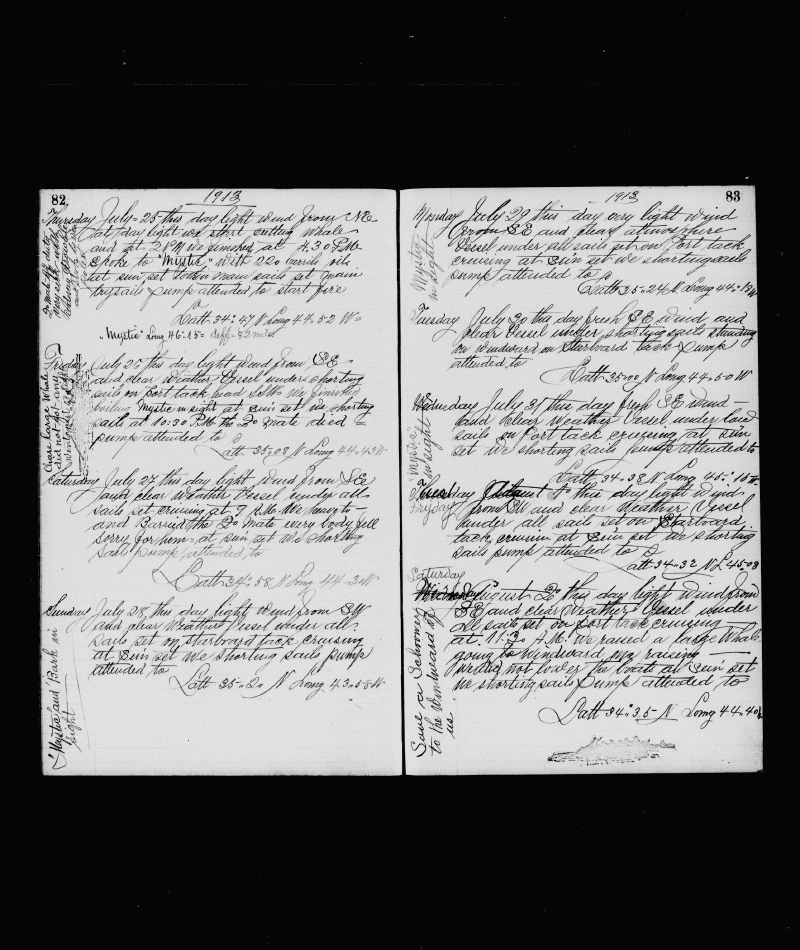 82
1913
Thursday July 25 this day light wind from NE
at day light we start cutting whale
and at 2 PM we finished at 4.30 P.M.
Spoke to "Mystic" with 220 barrels oils
at sun set took in main sails set main
trysails pump attended to start fire
Latt 34:47 N Long 44-52 W=
"Mystic" Long 46-15= diff= miles
Friday July 26 this day light wind from SE
and clear weather Vessel under shorting
sails on port tack head we finished
boiling Mystic in sight at sun set we shorting
sails at 10:30 P.M. the 2o mate died
pump attended to
Latt 35=08 N Long 44=43 W
Chase large Whale
did not get
Saturday July 27 this day light wind from SE
and clear Weather Vessel under all
sails set cruising at 9 A.M. We having to
and Barried the 2o Mate every body fell
sorry for him= at sun set we shorting
sail pump attended to
Latt 34=58 N Long 44-30 W
Sunday July 28, this day light wind from SW
and clear Weather Vessel under all
sails set on starboard tack cruising
at sun set We shorting sails pump
attended to
Latt 35=20 N Long 43=58 W
"Mystic" and Bark in
sight
83
1913
Monday July 29 this day very light wind
from SE and clear atmosphere
Vessel under all sails set on Port tack
cruising at sun set we shorting sails
pump attended to
Latt 35=24 N Long 44=19 W
Mystic
in sight
Tuesday July 30 this day fresh SE wind and
clear Vessel under shorting sails standing
on windward on Starboard tack Pump
attended to
Latt 35=00 N Long 44=50 W
Wednesday July 31 this day fresh SE wind
and clear Weather Vessel under low
sails on Port tack cruising at sun
set we shorting sails pump attended to
Latt 34=38 N Long 45=10 W
"Mystic"
in sight
Fryday August 1o this day light wind
from SW and clear Weather Vessel
under all sails set on Starboard
tack cruisin at sun set we shorting
sails pump attended to
Latt 34=32 N L 45=08
Saturday
August 2o this day light wind from
SE and clear Weather Vessel under
all sails set on port tack cruising
at 11:30 A.M. We raised a large Whale
going to windward raising
not lower the boats at sun set
we shorting sails pump attended to
Latt 34=35 N Long 44=40
Saw a Schooner
to the windward of
us